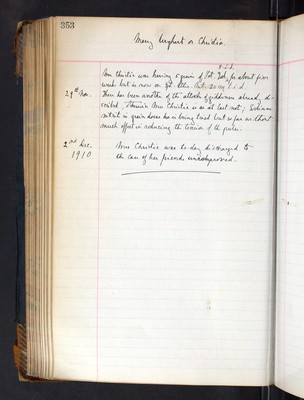 353
Mary Urquhart or Christie.
t.i.d.
Mrs Christie was having 5 grains of Pot. Iod. for about five
weeks but is now on
29th Nov. There has been another of the attacks of giddiness already de-
scribed, otherwise Mrs Christie is as at last note; Sodium
nitrite in grain doses has been tried but so far without
much effect in reducing the tension of the pulse.
2nd Dec. Mrs Christie was to-day discharged to
1910 the care of her friends unimproved.